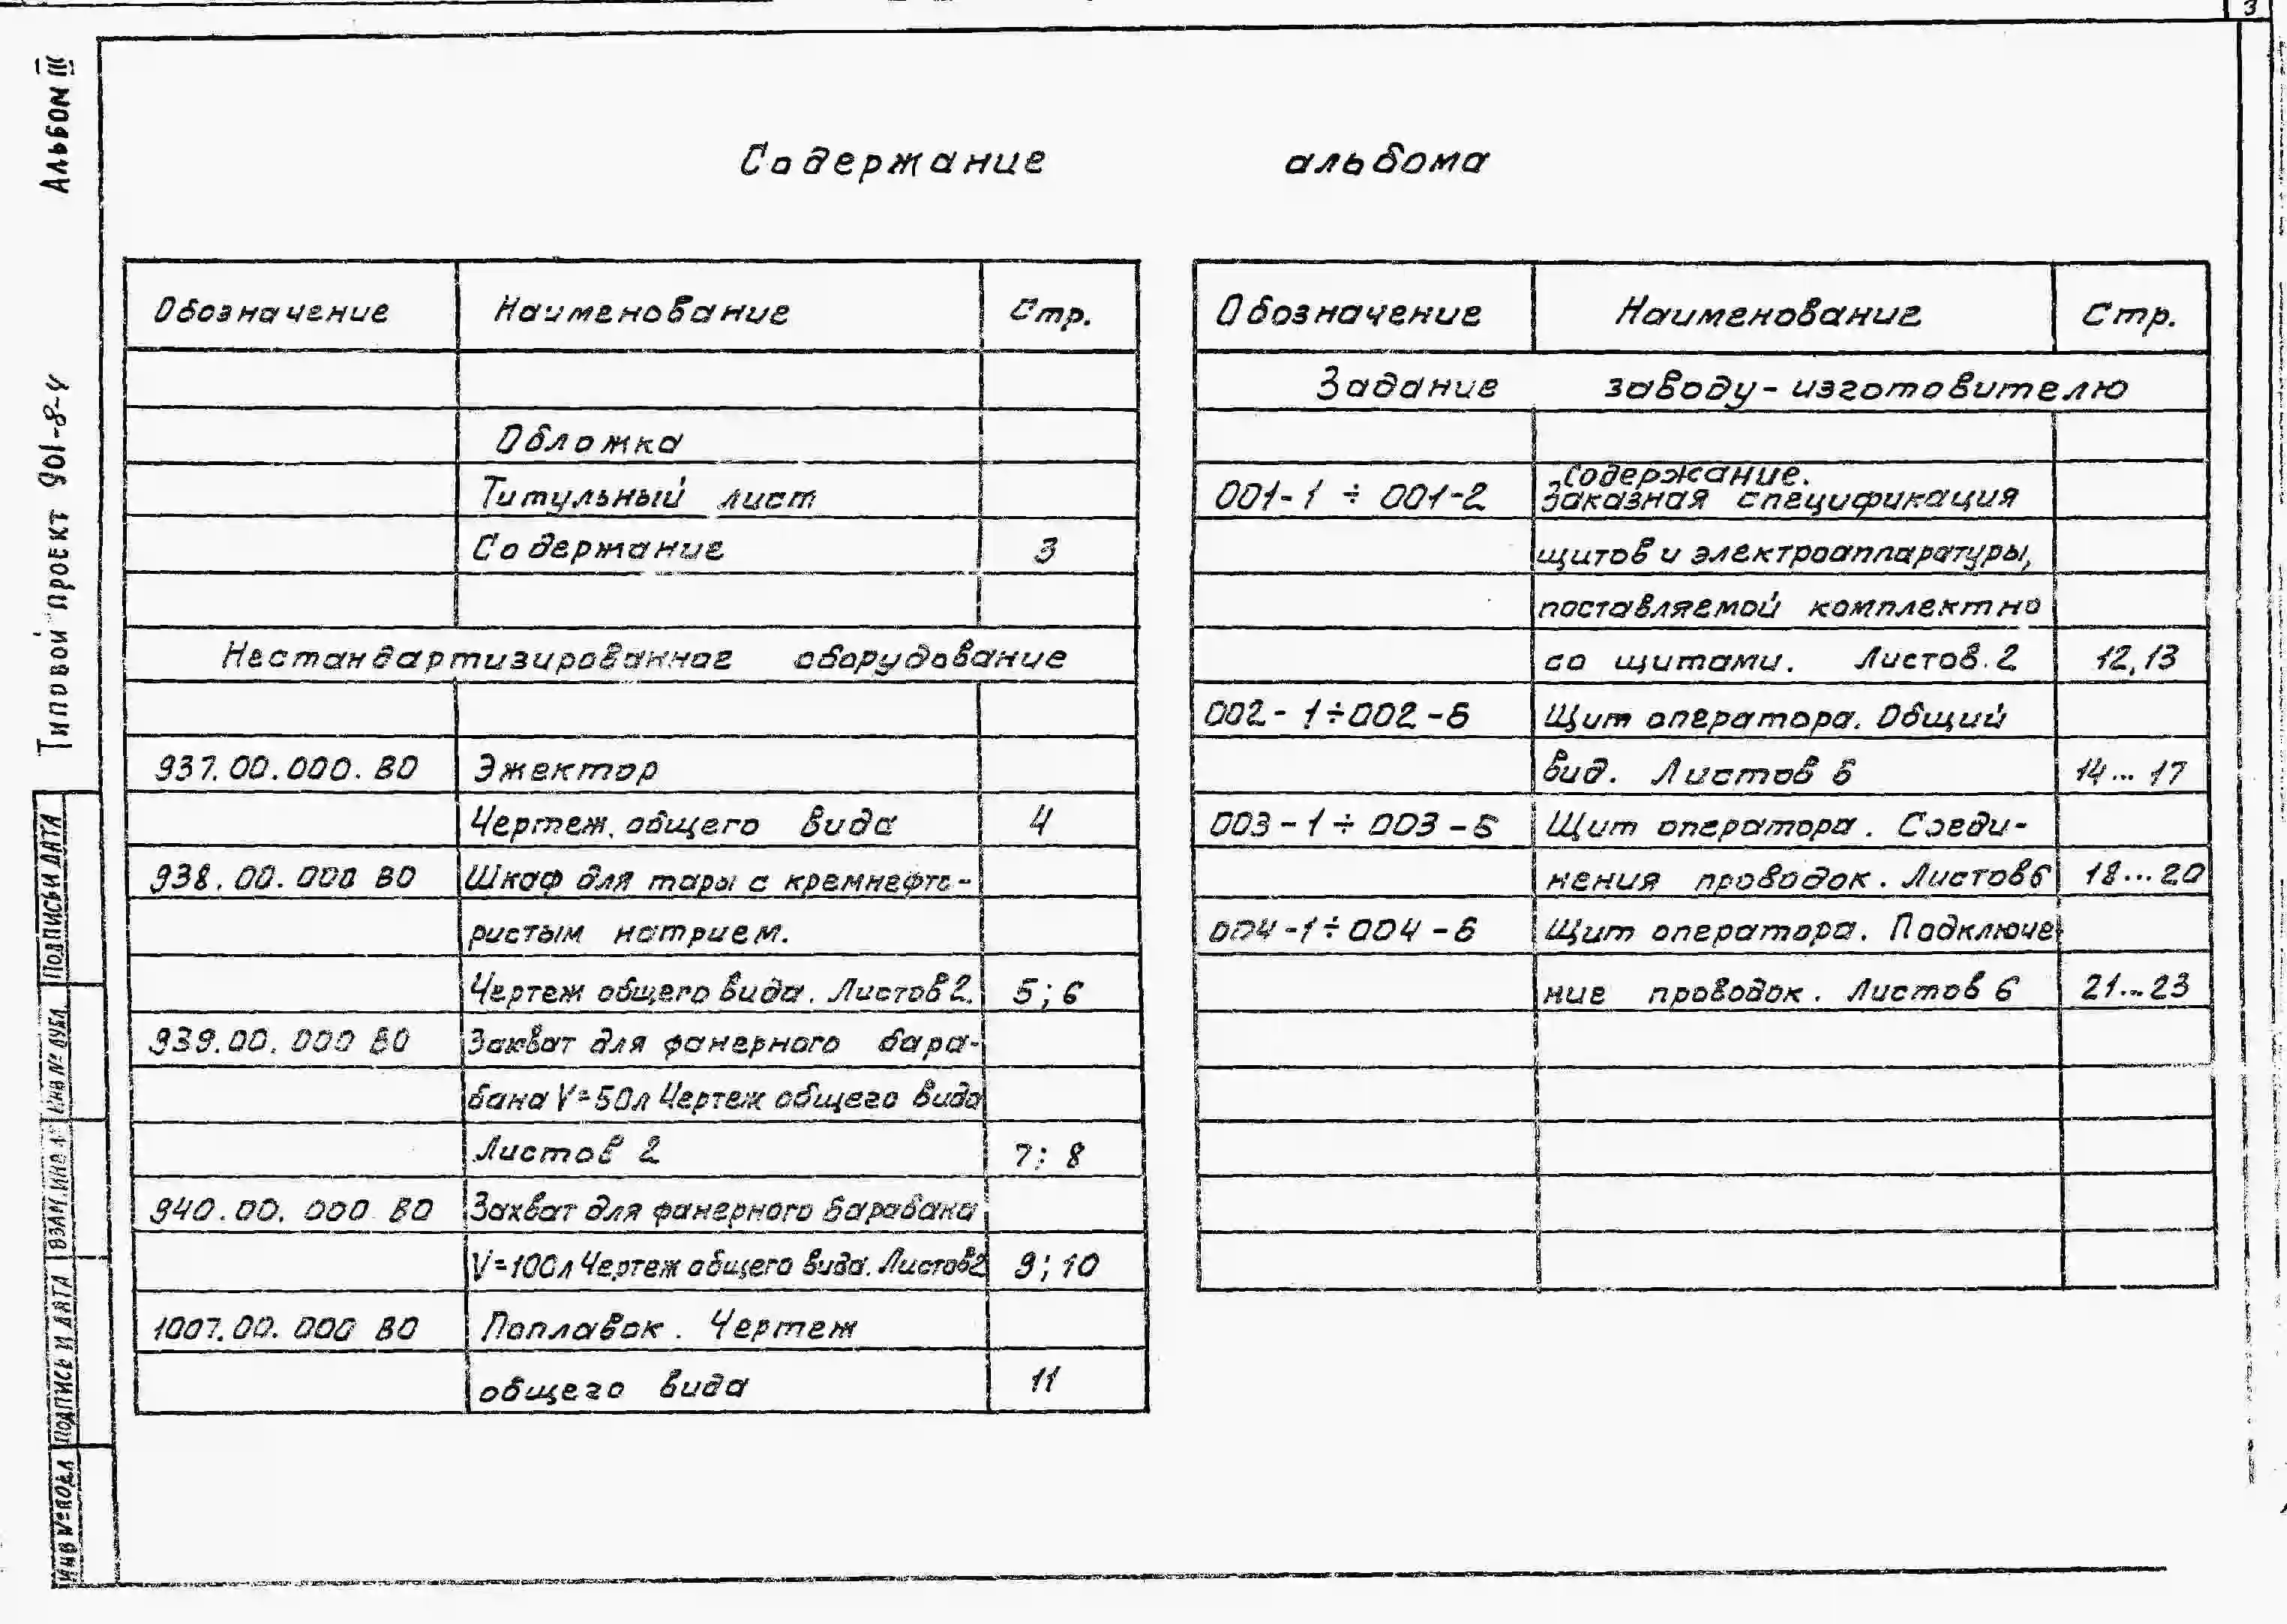 3
Альбом III
Типовой проект 901-8-4
Содержание альбома
Обозначение Наименование Стр.
Обложка
Титульный лист
Содержание 3
Нестандартизированное оборудование
937.00.000.ВО Эжектор
Чертеж общего вида 4
938.00.000 ВО Шкаф для тары с кремнефто-
ристым натрием.
Чертеж общего вида. Листов 2. 5; 6
939.00.000 ВО Захват для фанерного бара-
бана V=50л Чертеж общего вида
Листов 2 7; 8
940.00.000 ВО Захват для фанерного барабана
V=100л Чертеж общего вида. Листов 2 9; 10
1007.00.000 ВО Поплавок. Чертеж
общего вида 11
Обозначение Наименование Стр.
Задание заводу-изготовителю
Содержание.
001-1 ÷ 001-2 Заказная спецификация
щитов и электроаппаратуры,
поставляемой комплектно
со щитами. Листов 2 12,13
002-1÷002-6 Щит оператора. Общий
вид. Листов 6 14...17
003-1÷003-6 Щит оператора. Соеди-
нения проводок. Листов 6 18...20
004-1÷004-6 Щит оператора. Подключе
ние проводок. Листов 6 21...23
Подпись и дата
Инв № дубл
Взам. инв №
Подпись и дата
Инв № подл